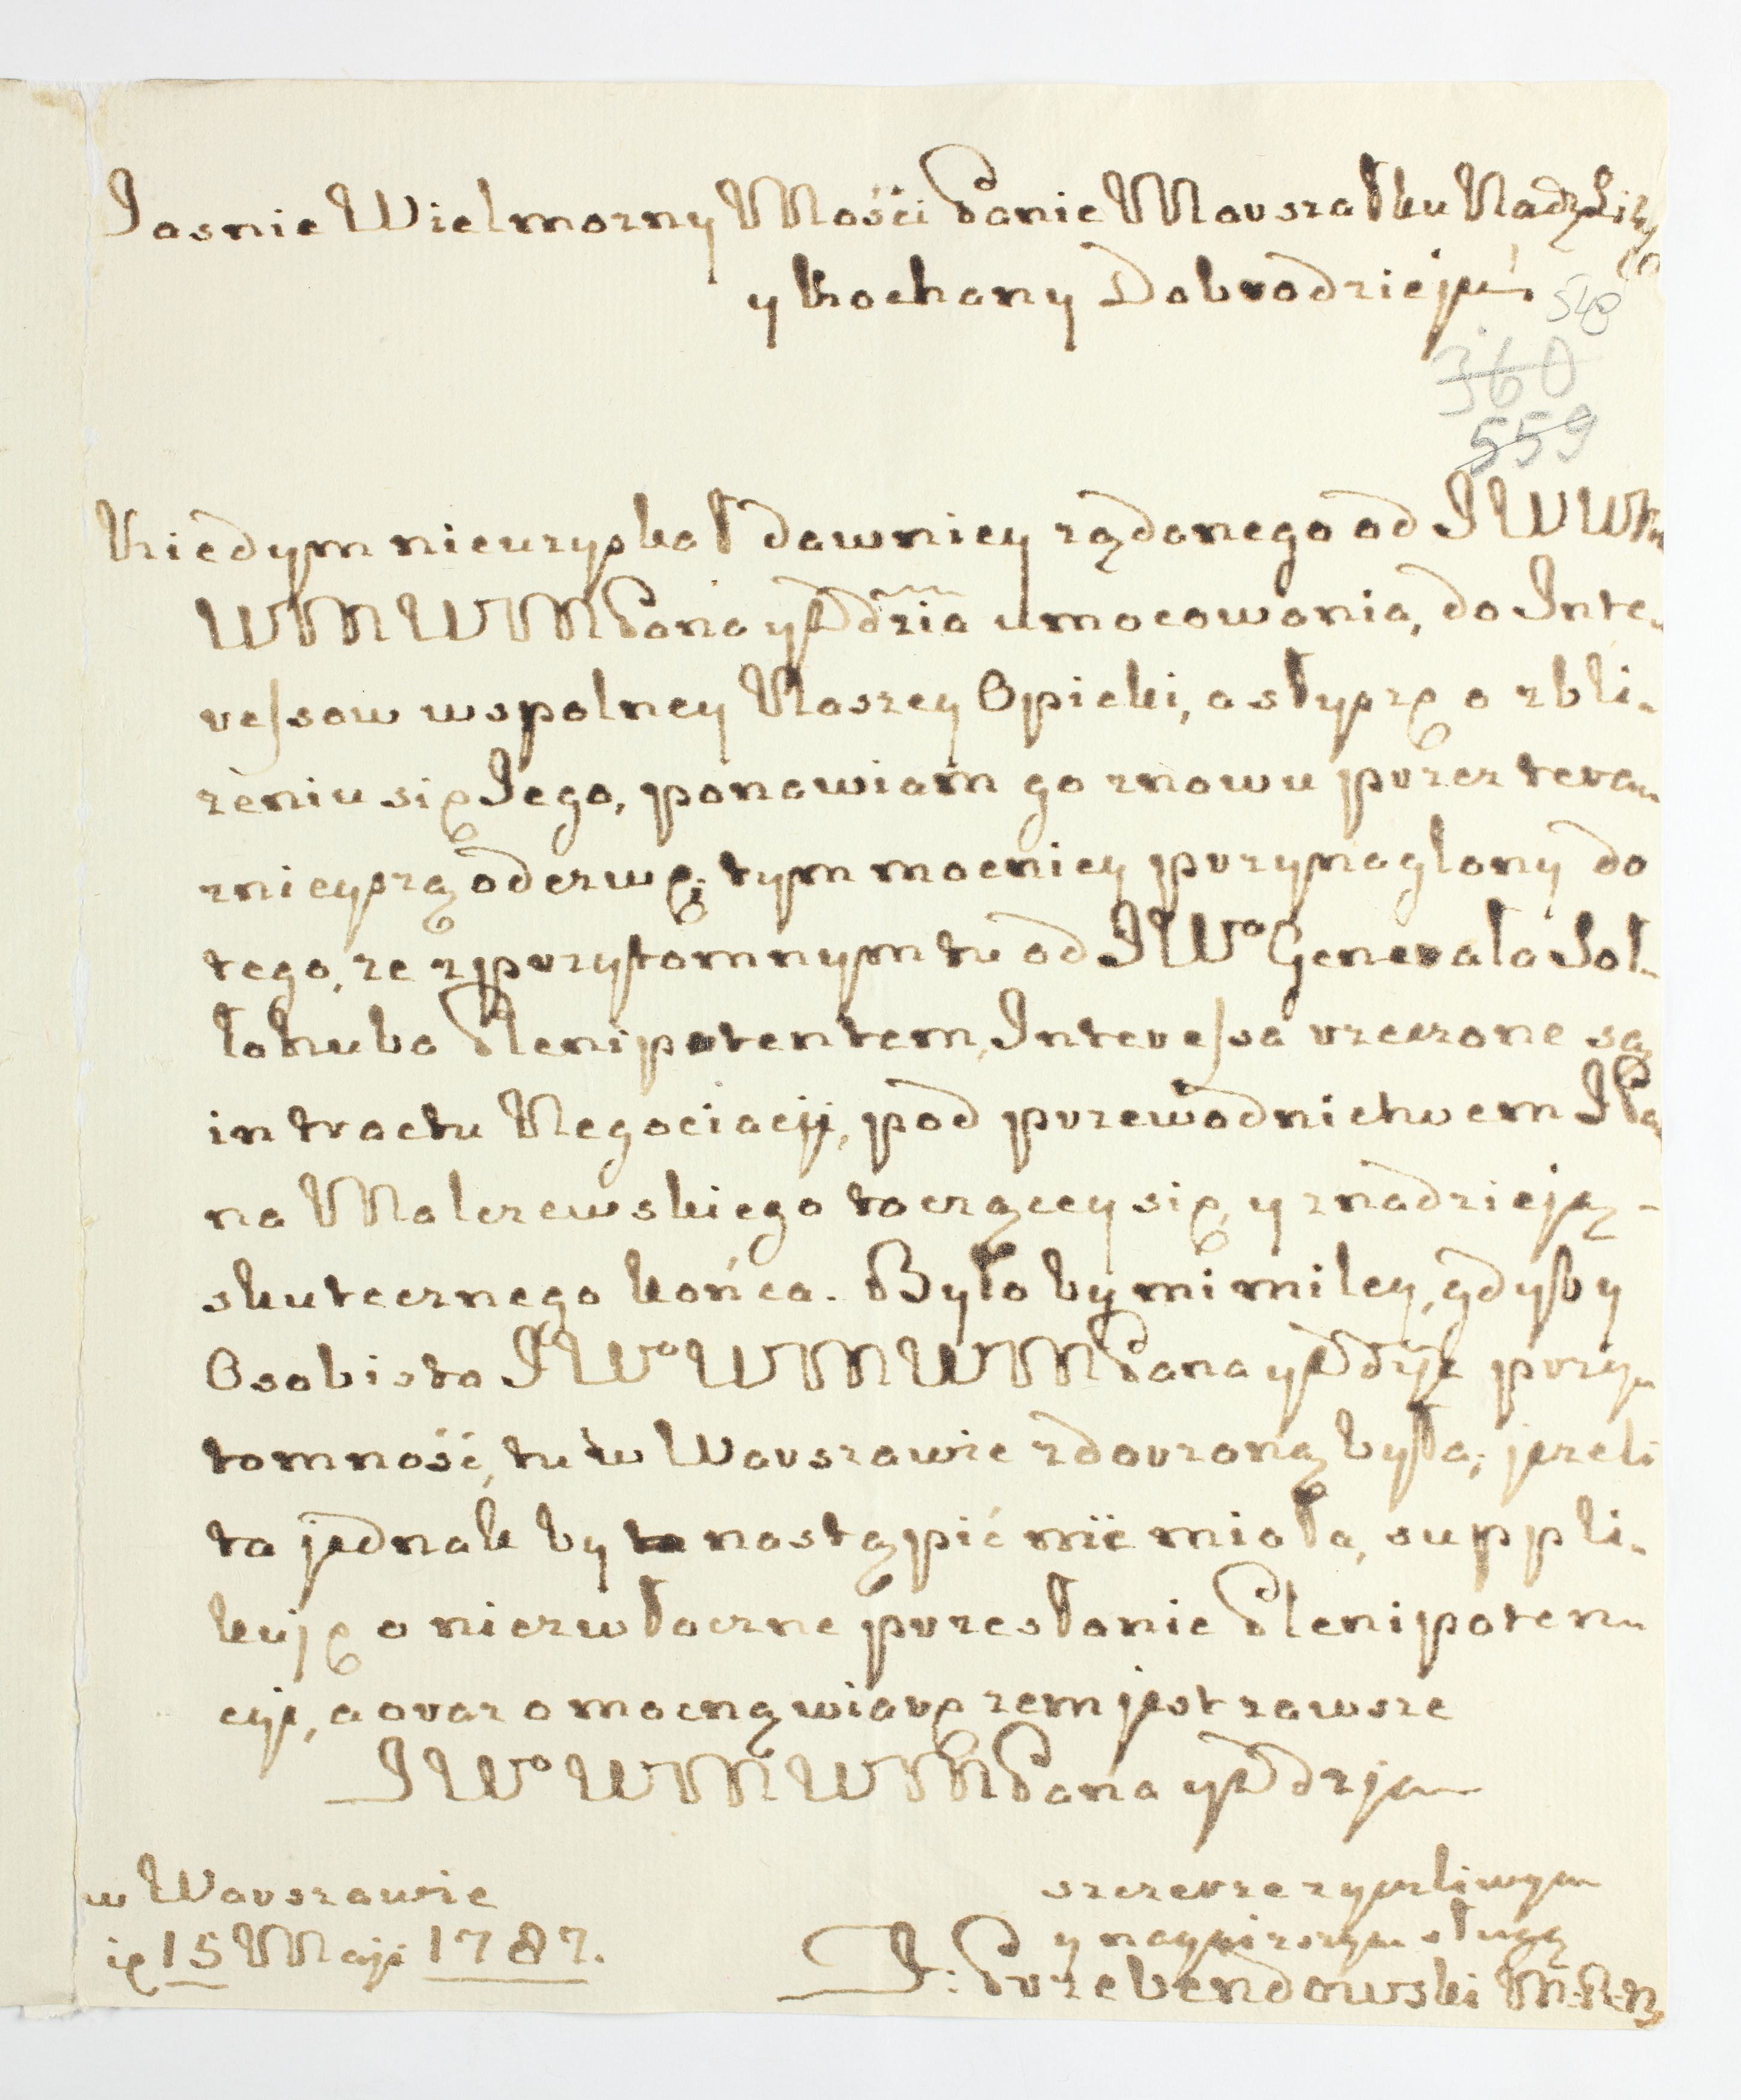 Jasnie Wielmozny Mości Panie Marszałku Nadz Lit
y Kochany Dobrodzieju
548
360
559
Kiedym nieuzyskał dawniey ządanego od JWW
WMWMPana y Ddzia umocowania, do Inte-
ressow wspolney Naszey Opieki, a słysząc o zbli-
zeniu się Jego, ponawiam go znowu przez tera-
znieyszą odezwę; tym mocniey przynaglony do
tego, ze z przytomnym tu od JWo Generała Sol-
łohuba Plenipotentem, Interessa rzeczone są
in tractu Negociacji, pod przewodnictwem JPa
na Malczewskiego toczącey się, y znadzieją -
skutecznego końca. Było by mi miley, gdyby
Osobista JWo WMWMPana y Ddzie przy-
tomność, tu w Warszawie zdarzoną była; jezeli
ta jednak by nastąpić nie miała, suppli-
kuję o niezwłoczne przesłanie Plenipoten-
cyi, a oraz o mocną wiarę zem jest zawsze
JWo WMWMPana y Ddzja
w Warszawie
ię 15 Maji 1787.
szczerze zyczliwym
y naynizszym sługą
J: Przebendowski M.R.N.